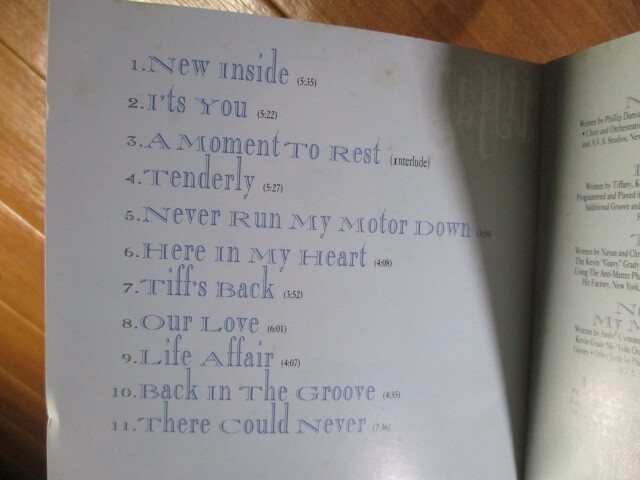 1. New Inside (5:35)
2. I'ts You (5:22)
3. A Moment To Rest (Interlude)
4. Tenderly (5:27)
5. Never Run My Motor Down
6. Here In My Heart (4:08)
7. Tiff's Back (3:52)
8. Our Love (6:01)
9. Life Affair (4:07)
10. Back In The Groove (4:35)
11. There Could Never (7:36)
Written by Phillip
• Choir and
and A.V.A. Studios, New
Written by Tiffany,
Programmed and Played
Additional Groove and
Written by Nayan and
The Kevin "Gravy" Grady
Using The Anti-Matter
Hit Factory, New York,
My M
Written by